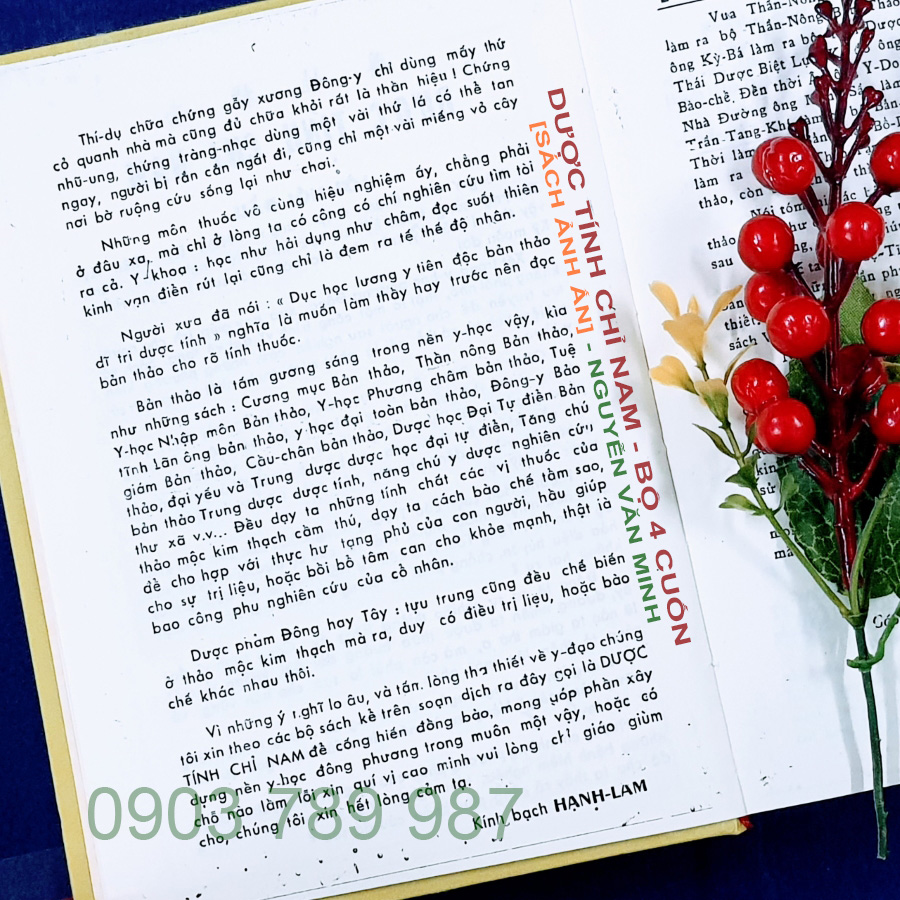 Thí-dụ chữa chứng gẫy xương Đông-y chỉ dùng mấy thứ
cỏ quanh nhà mà cũng đủ chữa khỏi rất là thần hiệu ! Chứng
nhũ-ung, chứng tràng-nhạc dùng một vài thứ lá có thể tan
ngay, người bị rắn cắn ngất đi, cũng chỉ một vài miếng vỏ cây
nơi bờ ruộng cứu sống lại như chơi.
Những môn thuốc vô cùng hiệu nghiệm ấy, chẳng phải
ở đâu xa, mà chỉ ở lòng ta có công có chí nghiên cứu tìm tòi
ra cả. Y khoa : học như hải dụng như châm, đọc suốt thiên
kinh vạn điển rút lại cũng chỉ là đem ra tế thế độ nhân.
Người xưa đã nói : « Dục học lương y tiên độc bản thảo
dĩ tri dược tính » nghĩa là muốn làm thầy hay trước nên đọc
bản thảo cho rõ tính thuốc.
Bản thảo là tấm gương sáng trong nền y-học vậy, kìa
như những sách : Cương mục Bản thảo, Thần nông Bản thảo,
Y-học Nhập môn Bản thảo, Y-học Phương châm bản thảo, Tuệ
tĩnh Lãn ông bản thảo, y học đại toàn bản thảo, Đông-y Bảo
giám Bản thảo, Cầu-chân bản thảo, Dược học Đại Tự điển Bản
thảo, đại yếu và Trung dược dược học đại tự điển, Tăng chú
bản thảo Trung dược dược tính, năng chú y dược nghiên cứu
thư xã v.v... Đều dạy ta những tính chất các vị thuốc của
thảo mộc kim thạch cầm thú, dạy ta cách bào chế tầm sao,
để cho hợp với thực hư tạng phủ của con người, hầu giúp
cho sự trị liệu, hoặc bồi bổ tâm can cho khỏe mạnh, thật là
bao công phu nghiên cứu của cổ nhân.
Dược phẩm Đông hay Tây : tựu trung cũng đều chế biến
ở thảo mộc kim thạch mà ra, duy có điều trị liệu, hoặc bào
chế khác nhau thôi.
Vì những ý nghĩ lo âu, và tấm lòng tha thiết về y-đạo chúng
tôi xin theo các bộ sách kể trên soạn dịch ra đây gọi là DƯỢC
TÍNH CHỈ NAM để cống hiến đồng bào, mong góp phần xây
dựng nền y-học đông phương trong muôn một vậy, hoặc có
chỗ nào lầm lỗi xin quí vị cao minh vui lòng chỉ giáo giùm
cho, chúng tôi xin hết lòng cảm tạ.
Kính bạch HẠNH-LAM
DƯỢC TÍNH CHỈ NAM - BỘ 4 CUỐN
[SÁCH ẢNH ẤN] - NGUYỄN VĂN MINH
0903 789 987
Vua Thần-Nông
làm ra bộ Thần-Nông Bản Thảo
ông Kỳ-Bá làm ra bộ
Thái Dược Biệt Lục
Bào-chế. Đến thời
Nhà Đường ông
Trần-Tang-Khí làm
Thời làm
làm ra
thảo, còn
Nói tóm
thảo như
sau
thiết
sách